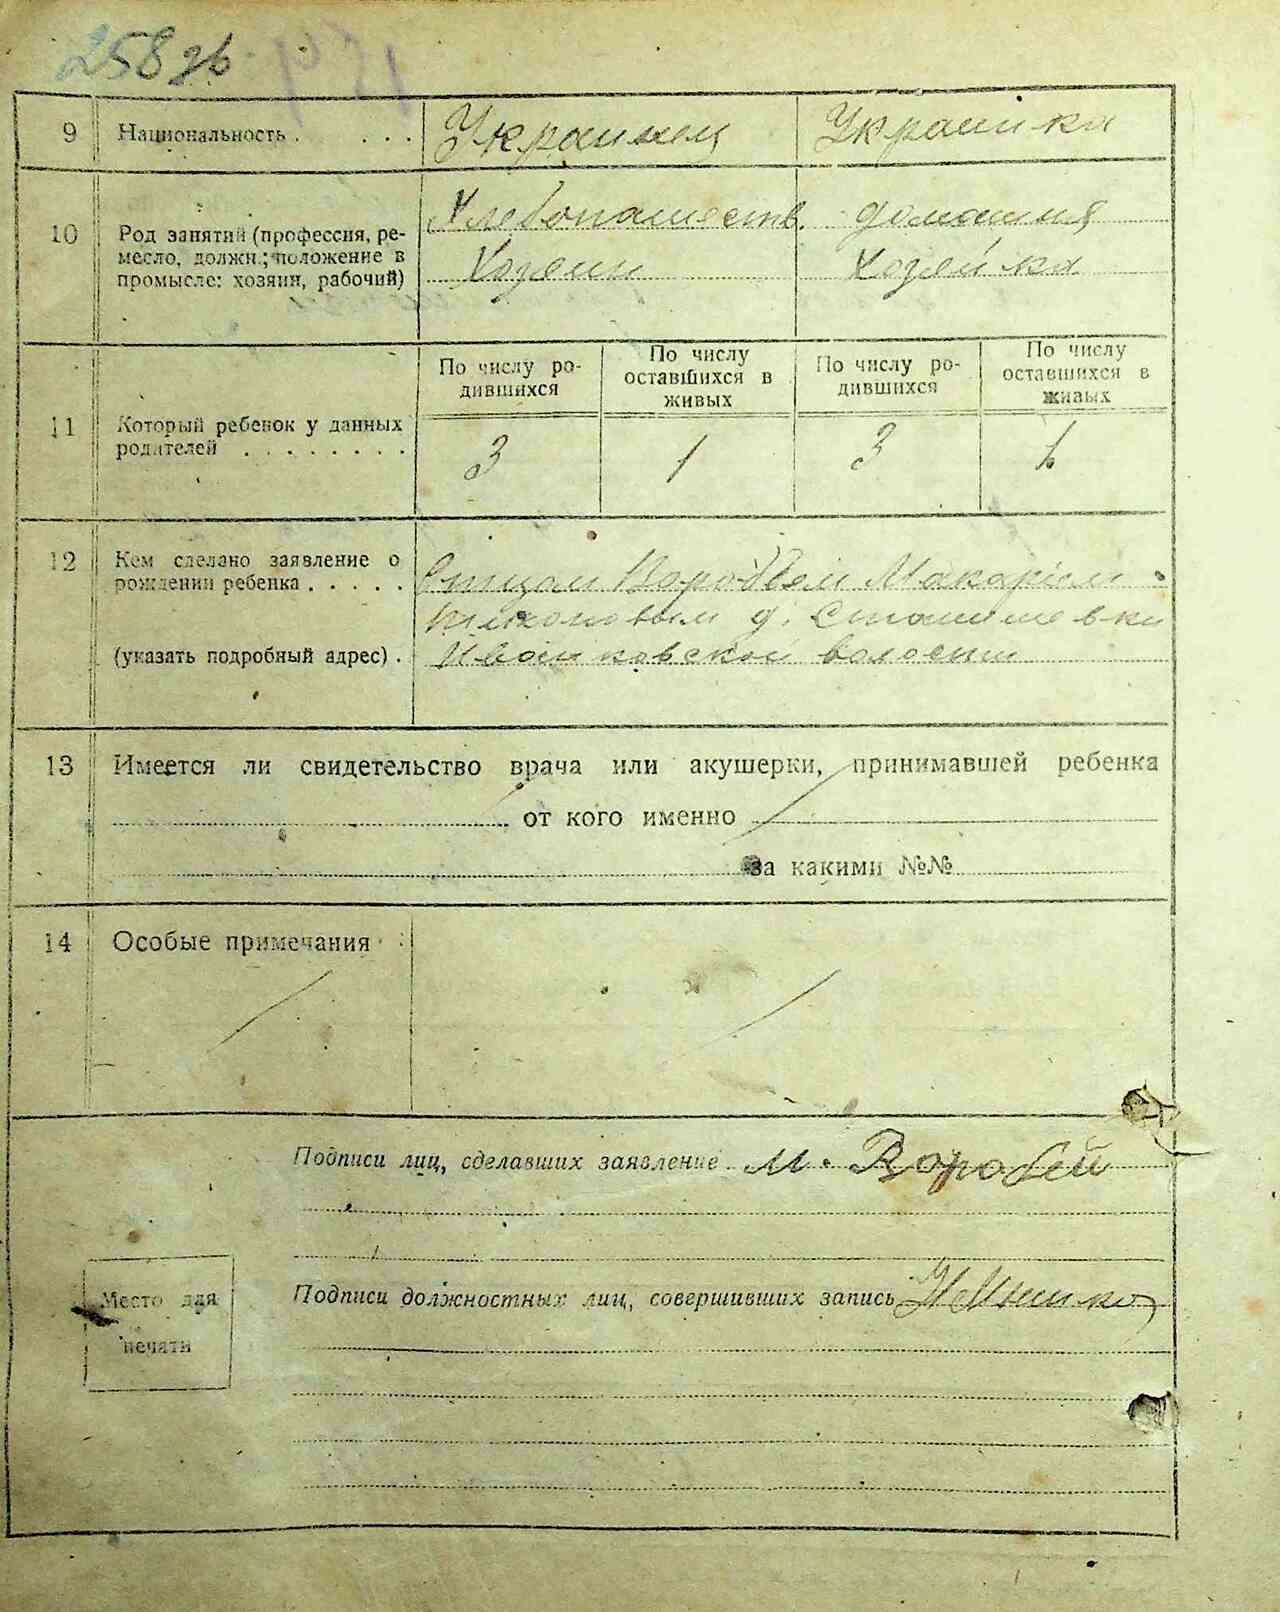 258 зв
9 Национальность . . . . Украинец Украинка
10 Род занятий (профессия, ре-
месло, должн.; положение в
промысле: хозяин, рабочий)
Хлебопашеств. домашня
Хозеин Хозейка
По числу ро-
дившихся
По числу
оставшихся в
живых
По числу ро-
дившихся
По числу
оставшихся в
живых
11 Который ребенок у данных
родителей . . . . . . . .
3 1 3 1
12 Кем сделано заявление о
рождении ребенка . . . . .
(указать подробный адрес) .
Отцом Воробьем Макаріем
Тихоновым д. Станишевки
Иванковской волости
13 Имеется ли свидетельство врача или акушерки, принимавшей ребенка
от кого именно
за какими №№
14 Особые примечания
Подписи лиц, сделавших заявление М. Воробей
Подписи должностных лиц, совершивших запись
Место для
печати